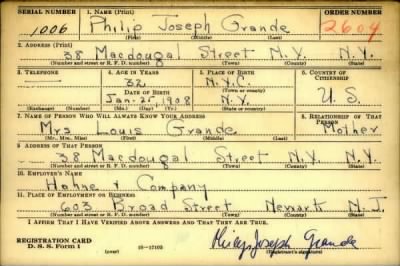 SERIAL NUMBER 1. NAME (Print) ORDER NUMBER
1006 Philip Joseph Grande 2604
(First) (Middle) (Last)
2. ADDRESS (Print)
38 Macdougal Street N.Y. N.Y.
(Number and street or R. F. D. number) (Town) (County) (State)
3. TELEPHONE 4. AGE IN YEARS 5. PLACE OF BIRTH 6. COUNTRY OF CITIZENSHIP
32 N.Y.C.
DATE OF BIRTH (Town or county)
Jan. 25, 1908 N.Y. U.S.
(Exchange) (Number) (Mo.) (Day) (Yr.) (State or country)
7. NAME OF PERSON WHO WILL ALWAYS KNOW YOUR ADDRESS 8. RELATIONSHIP OF THAT PERSON
Mrs Louis Grande Mother
(Mr., Mrs., Miss) (First) (Middle) (Last)
9. ADDRESS OF THAT PERSON
38 Macdougal Street N.Y. N.Y.
(Number and street or R. F. D. number) (Town) (County) (State)
10. EMPLOYER'S NAME
Hahne & Company
11. PLACE OF EMPLOYMENT OR BUSINESS
603 Broad Street Newark N.J.
(Number and street or R. F. D. number) (Town) (County) (State)
I AFFIRM THAT I HAVE VERIFIED ABOVE ANSWERS AND THAT THEY ARE TRUE.
REGISTRATION CARD Philip Joseph Grande
D. S. S. Form 1 (over) 16—17105 (Registrant's signature)